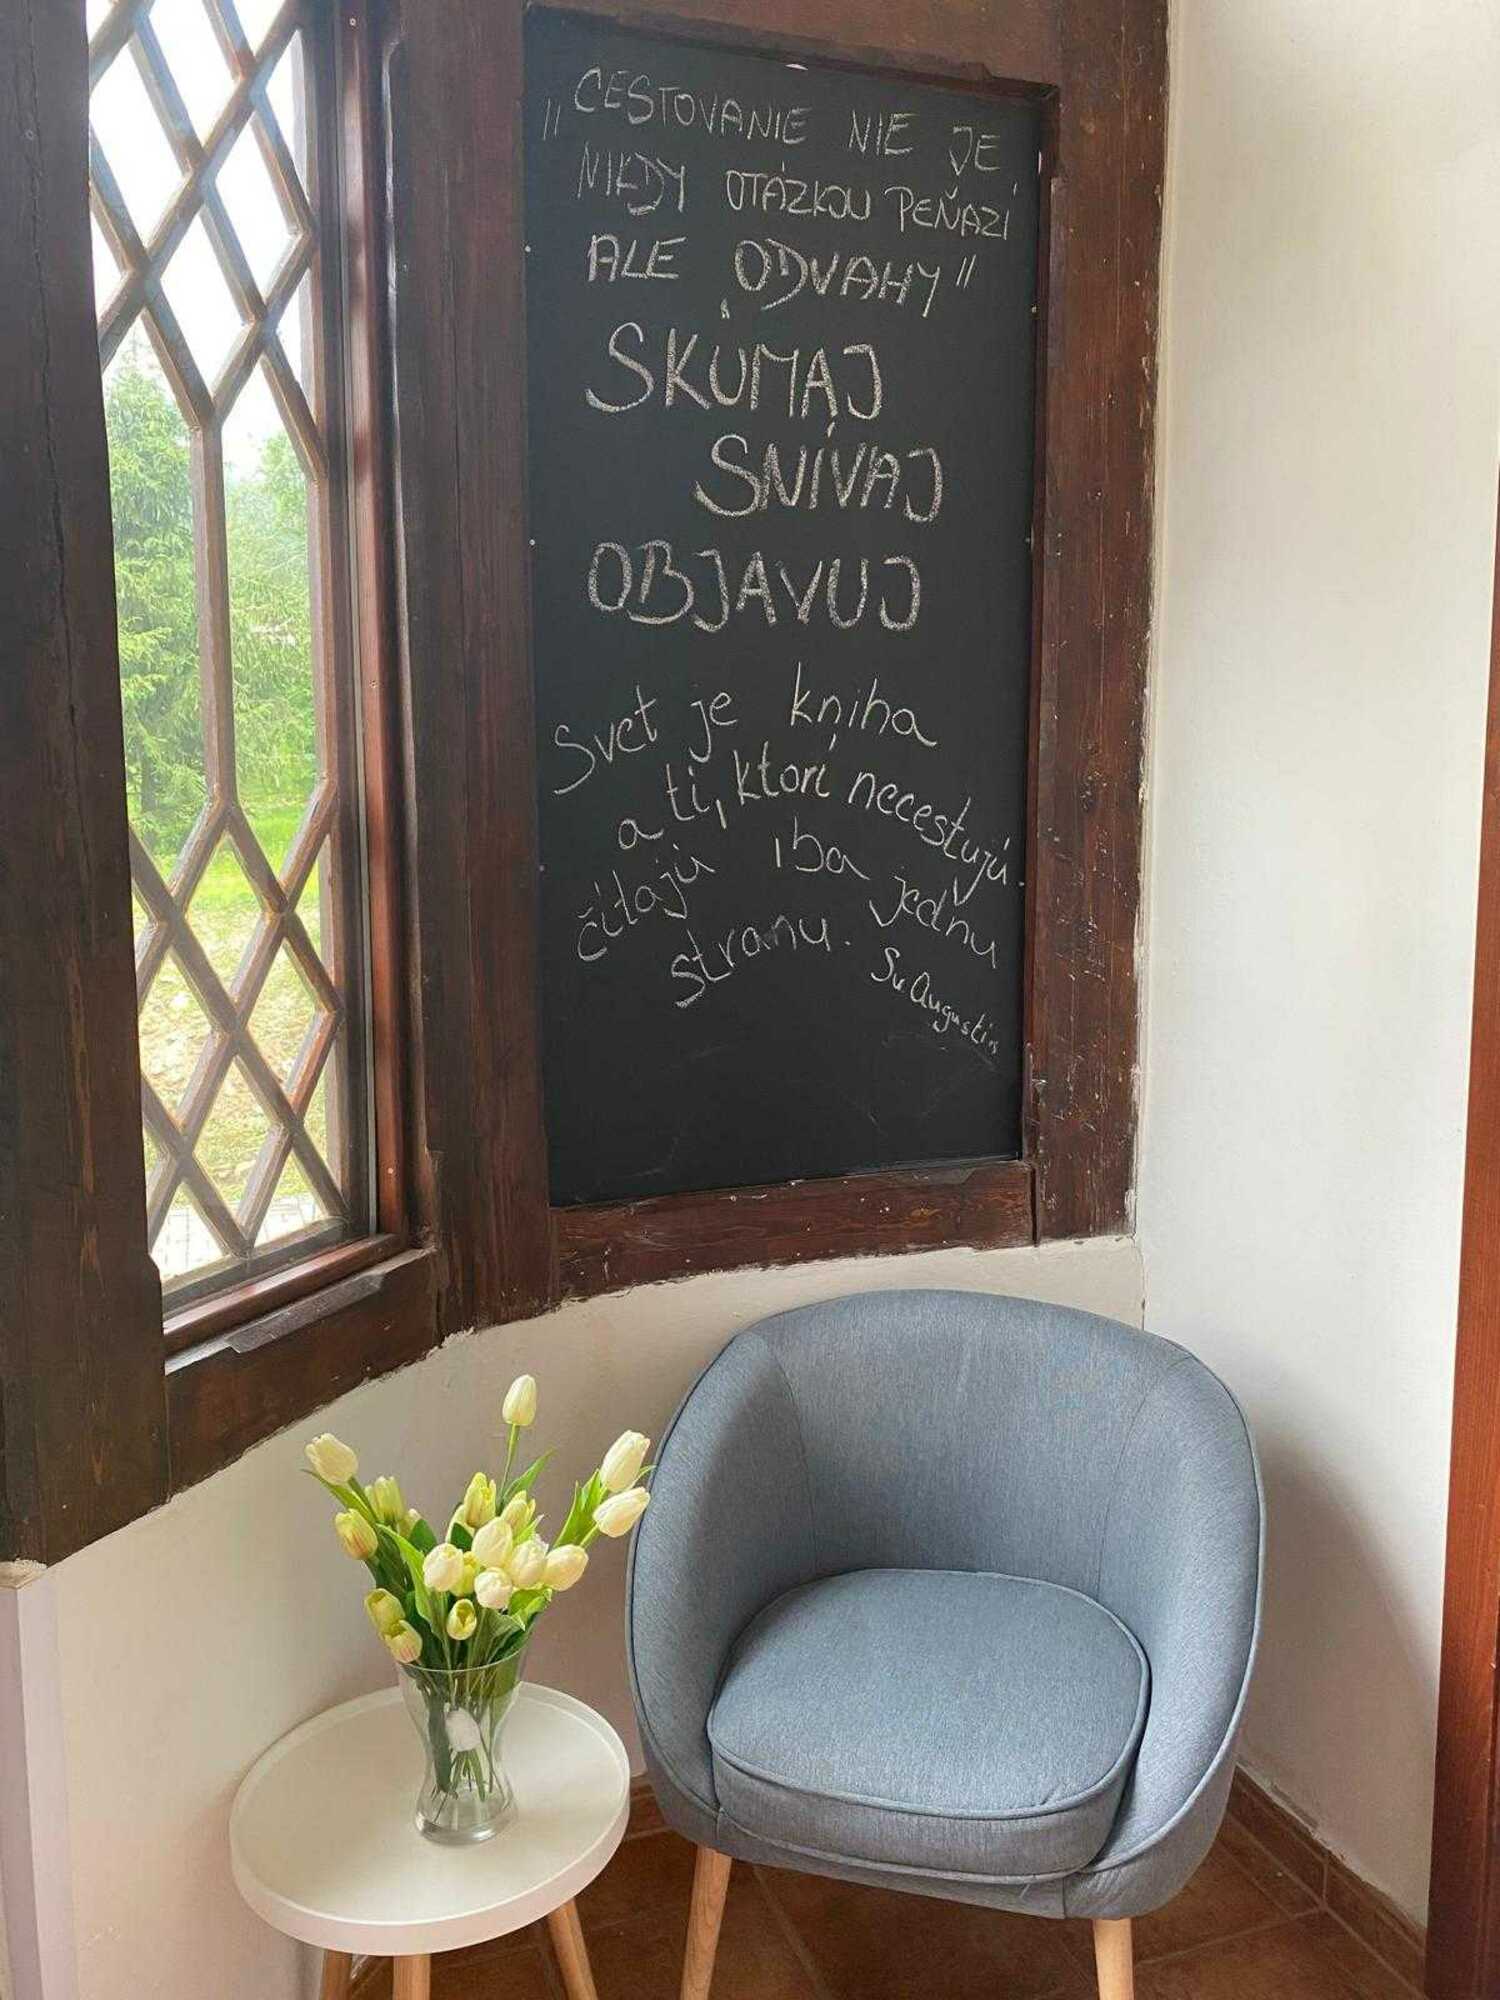 „CESTOVANIE NIE JE
NIKDY OTÁZKOU PEŇAZÍ
ALE ODVAHY"
SKÚMAJ
SNÍVAJ
OBJAVUJ
Svet je kniha
a tí, ktorí necestujú
čítajú iba jednu
stranu. Sv. Augustín